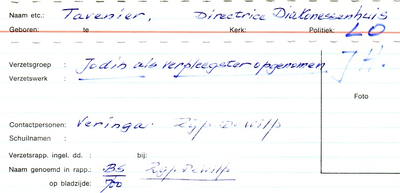 Naam etc.: Tavenier, Directrice Diakonessenhuis
Geboren: te Kerk: Politiek: LO
Verzetsgroep : Jodin als verpleegster opgenomen JH.
Verzetswerk :
Foto
Contactpersonen: Veringa
Schuilnamen :
Verzetsrapp. ingel. dd. : bij:
Naam genoemd in rapp.: BS
op bladzijde: